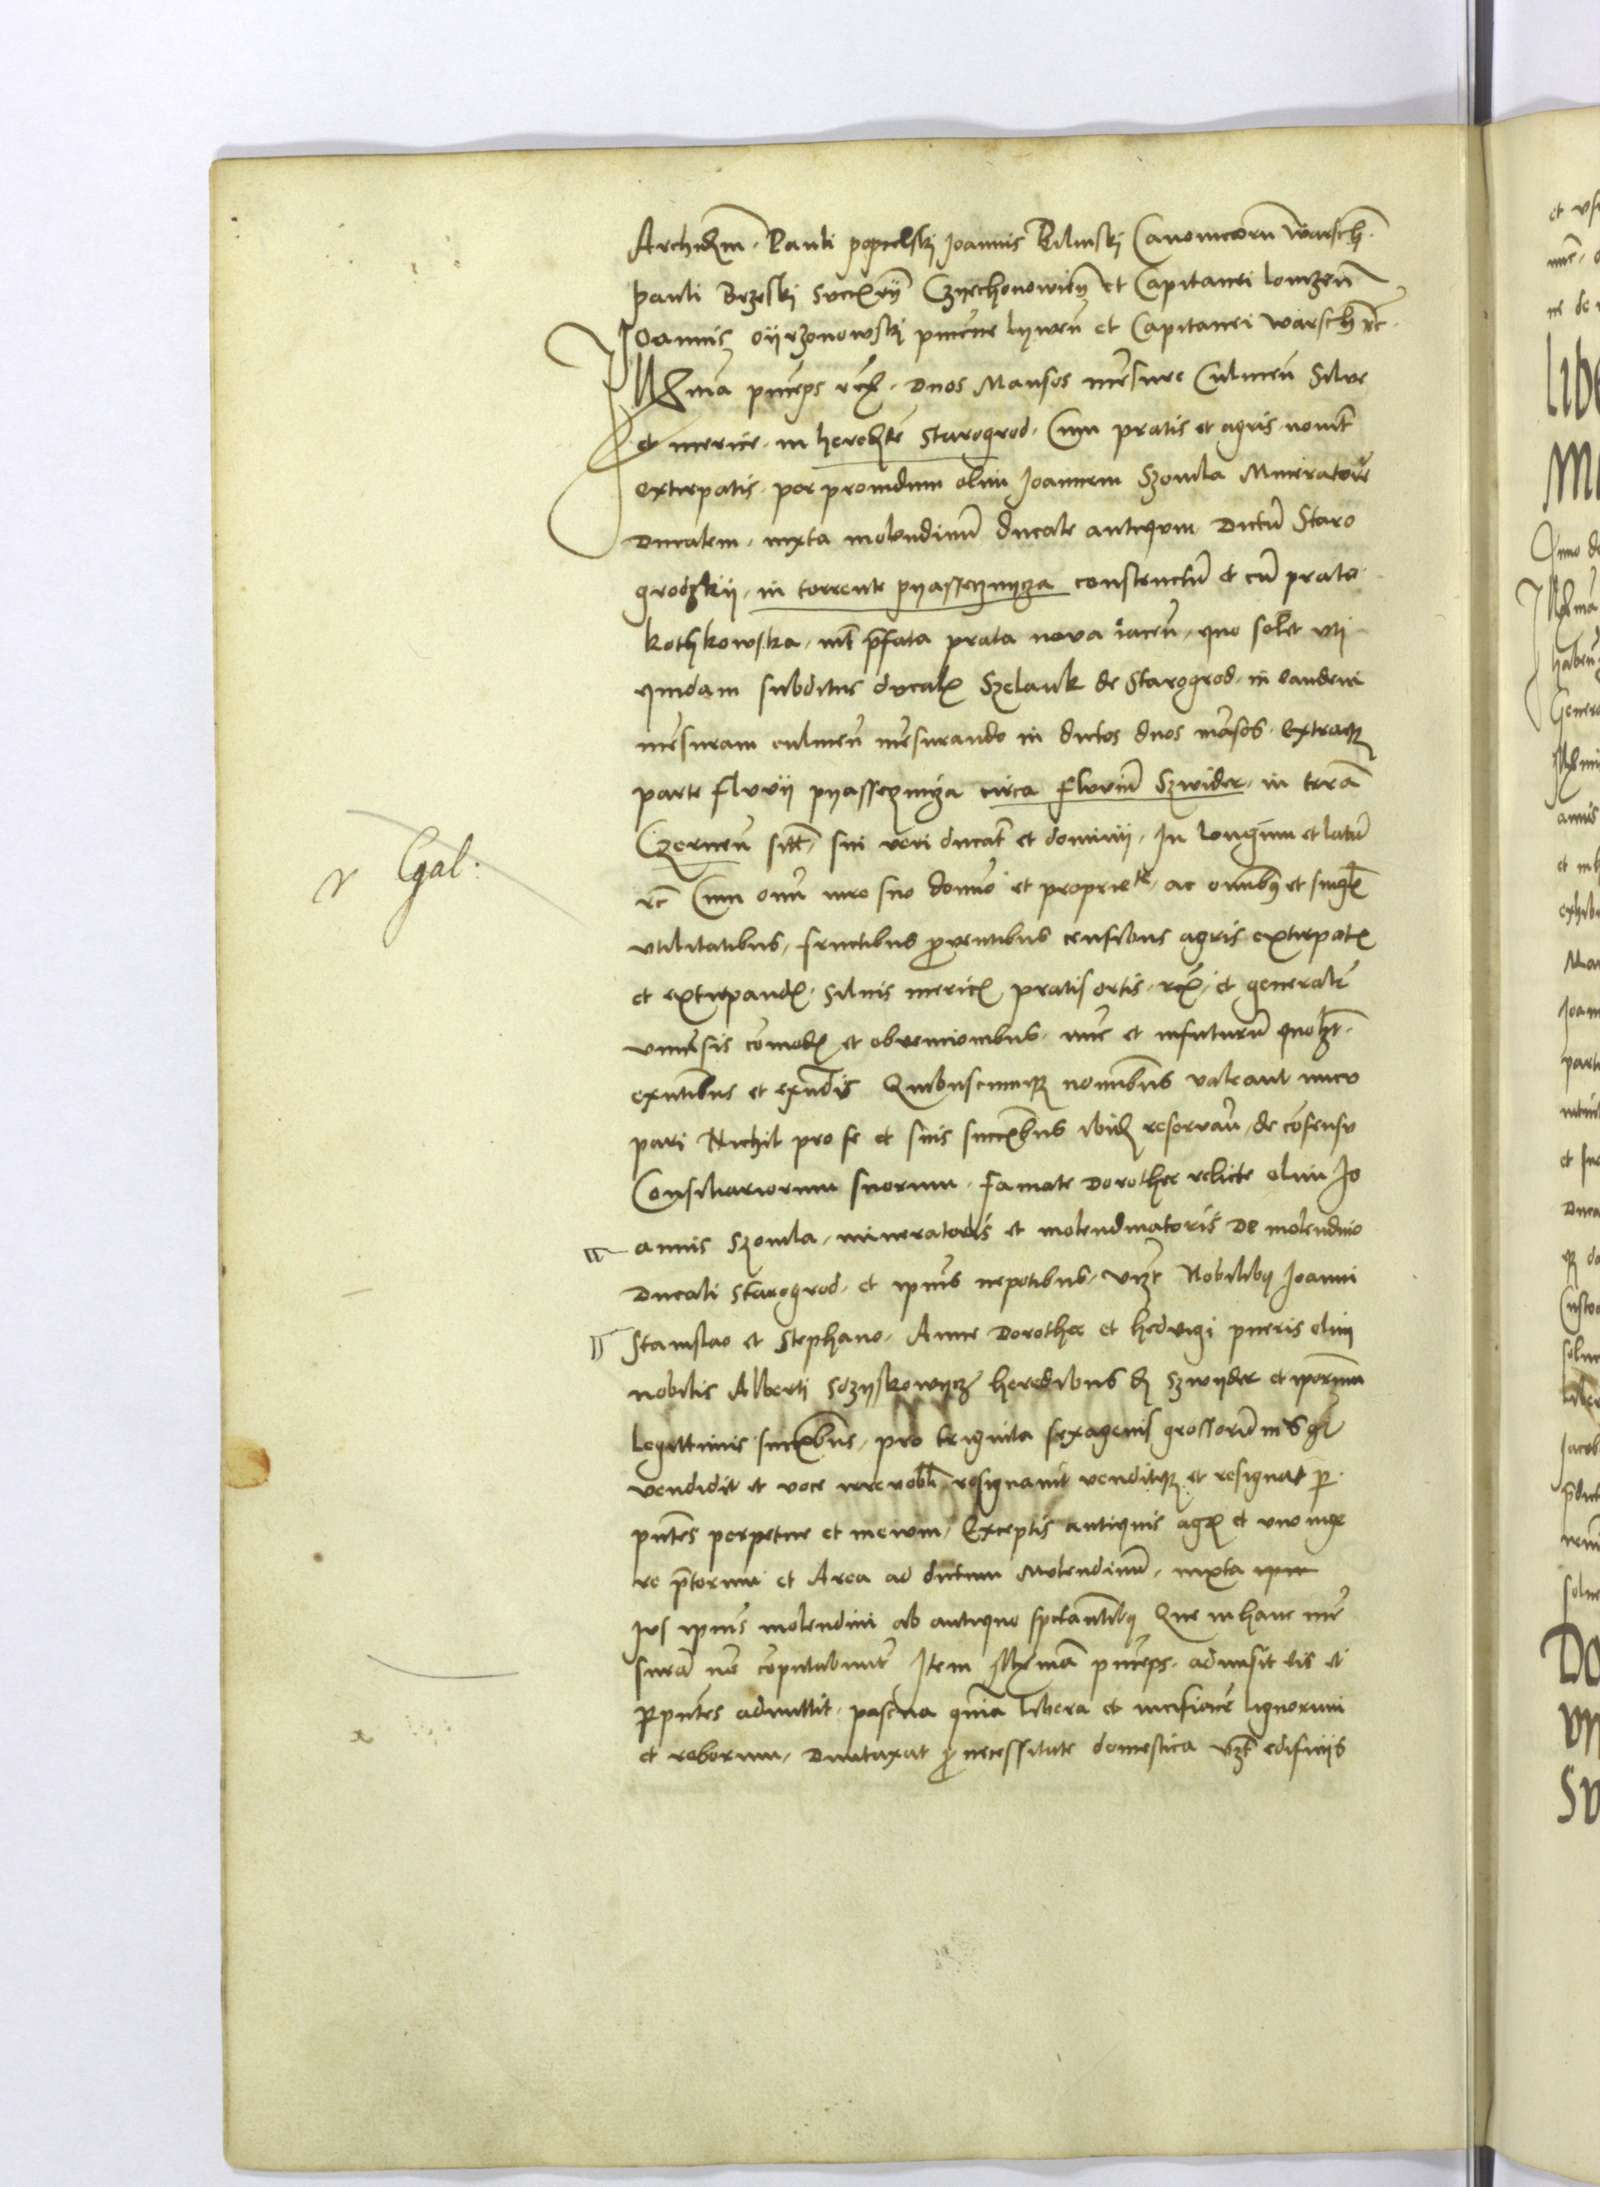 Archidm. Pauli popielski Joannis Bilinski Canonicorum Warsch.
Pauli Brzeski Czyechonowien et Capitanei lomzen
Joannis oyrzonowski pincerne lywen et Capitanei Warsch etc.
princeps etc. Duos Mansos mensure Culmen Silve
et merice in heredte Starogrod. Cum pratis et agris novit
extirpatis per providum olim Joannem Szomla Mineratore
Ducalem, iuxta molendinu ducale antiquum Dictu Staro
grodzkij, in torrente pyassecznycza constructu et cu prato
kothkowska, int pfata prata nova iacen, quo solet vti
quidam subditus ducalis Szelauk de Starogrod in eandem
mensuram culmen mensurando in dictos duos mansos. Ex traque
parte fluvij pyasseznicza circa fluviu Szwider in terra
Czernen sitt, sui veri ducat et dominij. In longum et latu
etc Cum omi iure suo domio et propriete, ac omibus et singlis
vtilitatibus, fructibus proventibus censibus agris extirpatis
et extirpandis silvis mericis pratis ortis etc, et generale
vniversis comodis et obvencionibus nunc et infuturu quoli3t
exntibus et exndis Quibuscumque nominibus valeant nuncu
pari Nichil pro se et suis succribus ibidem reservan, de consensu
Consiliariorum suorum. famate Dorothee relicte olim Jo
annis Szomla, mineratoris et molendinatoris De molendino
Ducali Starogrod et ipius nepotibus, vi3t Nobilibus Joanni
Stanislao et Stephano. Anne Dorothee et hedvigi pueris olim
nobilis Alberti heredibus de Szwyder et iporum
legittimis succribus, pro triginta sexagenis grossoru in
vendidit et voce irrevobli resignavit venditque et resignat per
pntes perpetue et inevum, Exceptis antiquis agris et vno iuge
re pratorum et Area ad dictum Molendinu, iuxta
Jus ipius molendini ab antiquo spectantibus Que in hanc men
sura non computabunt Item princeps admisit eis et
Per pntes admittit pascua omia libera et incisione lignorum
et roborum, Dumtaxat pro necessitate domestica vi3t edificijs
Gal.